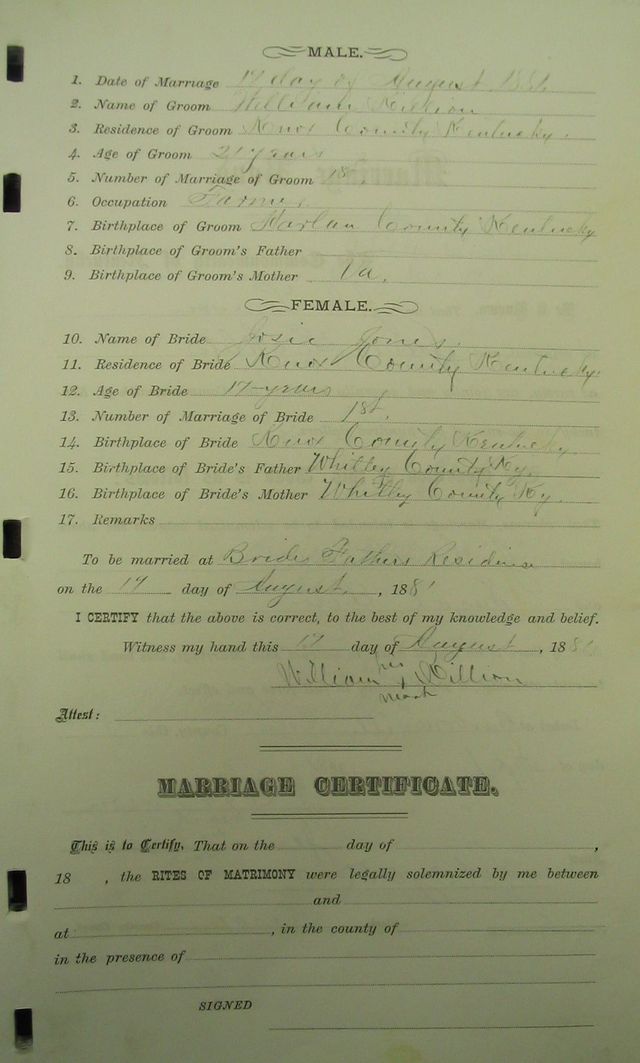 MALE.
1. Date of Marriage 17 day of August 1881
2. Name of Groom William
3. Residence of Groom Knox County Kentucky.
4. Age of Groom 21 years
5. Number of Marriage of Groom 1st.
6. Occupation Farmer
7. Birthplace of Groom Harlan County Kentucky
8. Birthplace of Groom's Father
9. Birthplace of Groom's Mother Va.
FEMALE.
10. Name of Bride Josie Jones.
11. Residence of Bride Knox County Kentucky.
12. Age of Bride 17 years
13. Number of Marriage of Bride 1st.
14. Birthplace of Bride Knox County Kentucky
15. Birthplace of Bride's Father Whitley County Ky.
16. Birthplace of Bride's Mother Whitley County Ky.
17. Remarks
To be married at Brides Fathers Residence
on the 17 day of August, 1881
I CERTIFY that the above is correct, to the best of my knowledge and belief.
Witness my hand this 17 day of August, 1881
his
William x
mark
Attest:
MARRIAGE CERTIFICATE.
This is to Certify, That on the day of ,
18 , the RITES OF MATRIMONY were legally solemnized by me between
and
at , in the county of
in the presence of
SIGNED